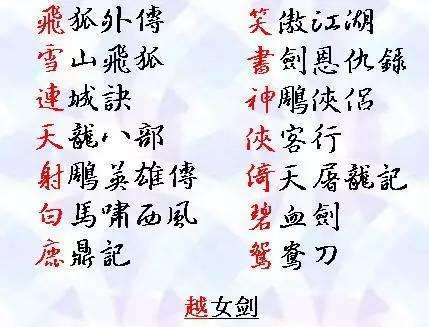 飛狐外傳
雪山飛狐
連城訣
天龍八部
射鵰英雄傳
白馬嘯西風
鹿鼎記
笑傲江湖
書劍恩仇錄
神鵰俠侶
俠客行
倚天屠龍記
碧血劍
鴛鴦刀
越女剑